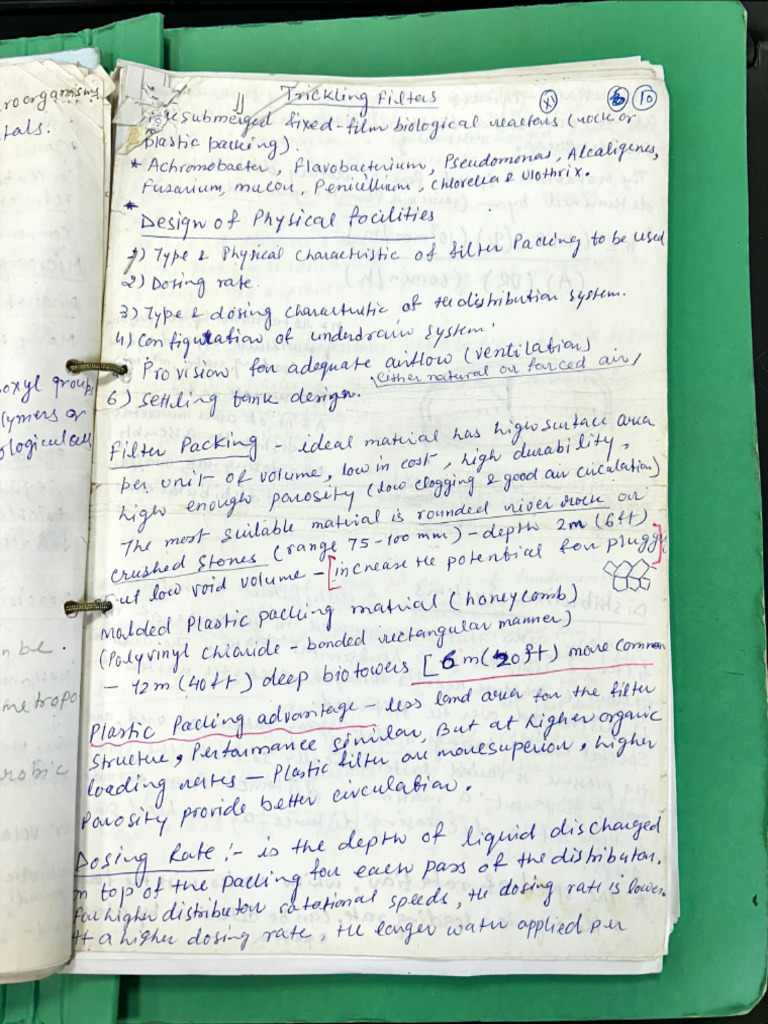 roorganisms
tals.
oxyl groups
lymers or
ological cell
n be.
metropo
robic
Trickling Filters
XI
10
submerged fixed-film biological reactors (rock or
plastic packing).
* Achromobacter, Flavobacterium, Pseudomonas, Alcaligenes,
Fusarium, mucor, Penicillium, chlorella & Ulothrix.
* Design of Physical facilities
1) Type & Physical characteristic of filter Packing to be used
2) Dosing rate.
3) Type & dosing characteristic of the distribution system.
4) configuration of underdrain system.
Provision for adequate airflow (ventilation)
(either natural or forced air)
6) Settling tank design.
Filter Packing - ideal material has high surface area
per unit of volume, low in cost, high durability,
high enough porosity (low clogging & good air circulation)
The most suitable material is rounded river rock or
crushed stones (range 75-100 mm) - depth 2m (6ft)
But low void volume - [increase the potential for pluggi]
Molded Plastic packing material (honeycomb)
(Polyvinyl chloride - bonded rectangular manner)
- 12m (40ft) deep biotowers [6m (20ft) more common
Plastic Packing advantage - less land area for the filter
structure, Performance similar, But at higher organic
loading rates - Plastic filter are more superior, higher
Porosity provide better circulation.
Dosing Rate :- is the depth of liquid discharged
on top of the packing for each pass of the distributor.
For higher distributor rotational speeds, the dosing rate is lower.
At a higher dosing rate, the larger water applied per